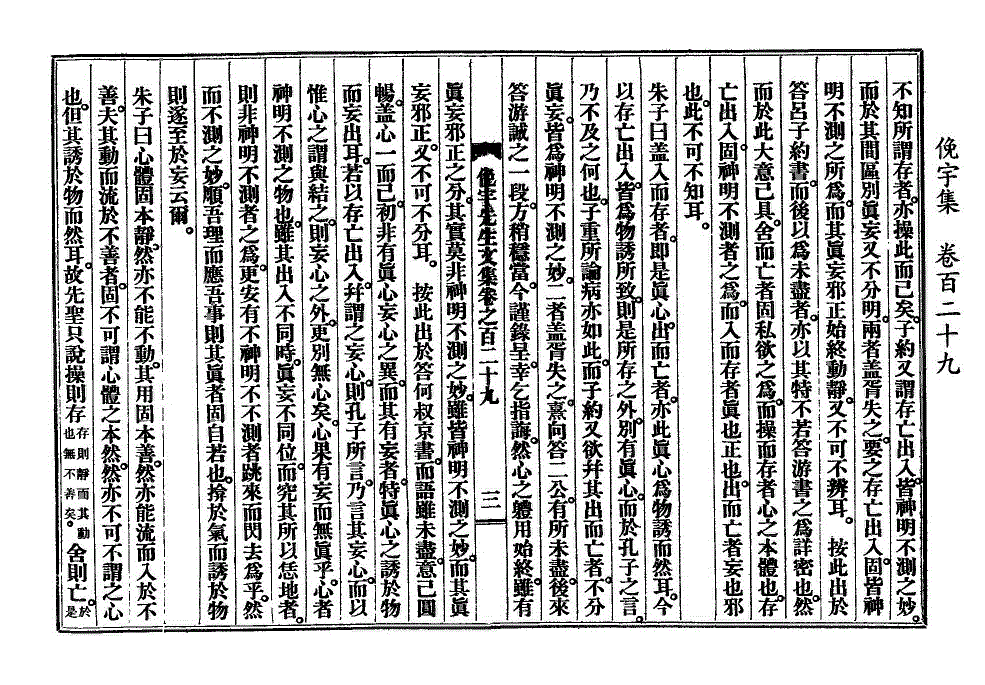 俛宇集　卷百二十九
不知所謂存者。亦操此而已矣。子約又謂存亡出入。皆神明不測之妙。
而於其間區別眞妄又不分明。兩者盖胥失之。要之存亡出入。固皆神
明不測之所爲。而其眞妄邪正始終動靜。又不可不辨耳。　按此出於
答呂子約書。而後以爲未盡者。亦以其特不若答游書之爲詳密也。然
而於此大意已具。舍而亡者固私欲之爲。而操而存者心之本體也。存
亡出入。固神明不測者之爲。而入而存者眞也正也。出而亡者妄也邪
也。此不可不知耳。
朱子曰盖入而存者。卽是眞心。出而亡者。亦此眞心爲物誘而然耳。今
以存亡出入。皆爲物誘所致。則是所存之外。別有眞心。而於孔子之言。
乃不及之何也。子重所論病亦如此。而子約又欲幷其出而亡者。不分
眞妄。皆爲神明不測之妙。二者盖胥失之。熹向答二公。有所未盡。後來
答游誠之一段。方稍穩當。今謹錄呈。幸乞指誨。然心之軆用始終。雖有
俛宇先生文集卷之百二十九　三
眞妄邪正之分。其實莫非神明不測之妙。雖皆神明不測之妙。而其眞
妄邪正。又不可不分耳。　按此出於答何叔京書。而語雖未盡。意已圓
暢。盖心一而已。初非有眞心妄心之異。而其有妄者。特眞心之誘於物
而妄出耳。若以存亡出入。幷謂之妄心。則孔子所言。乃言其妄心。而以
惟心之謂與結之。則妄心之外。更別無心矣。心果有妄而無眞乎。心者
神明不測之物也。雖其出入不同時。眞妄不同位。而究其所以恁地者。
則非神明不測者之爲。更安有不神明不不測者跳來而閃去爲乎。然
而不測之妙。順吾理而應吾事。則其眞者固自若也。揜於氣而誘於物
則遂至於妄云爾。
朱子曰心體固本靜。然亦不能不動。其用固本善。然亦能流而入於不
善。夫其動而流於不善者。固不可謂心體之本然。然亦不可不謂之心
也。但其誘於物而然耳。故先聖只說操則存存則靜而其動也無不善矣。舍則亡。於是